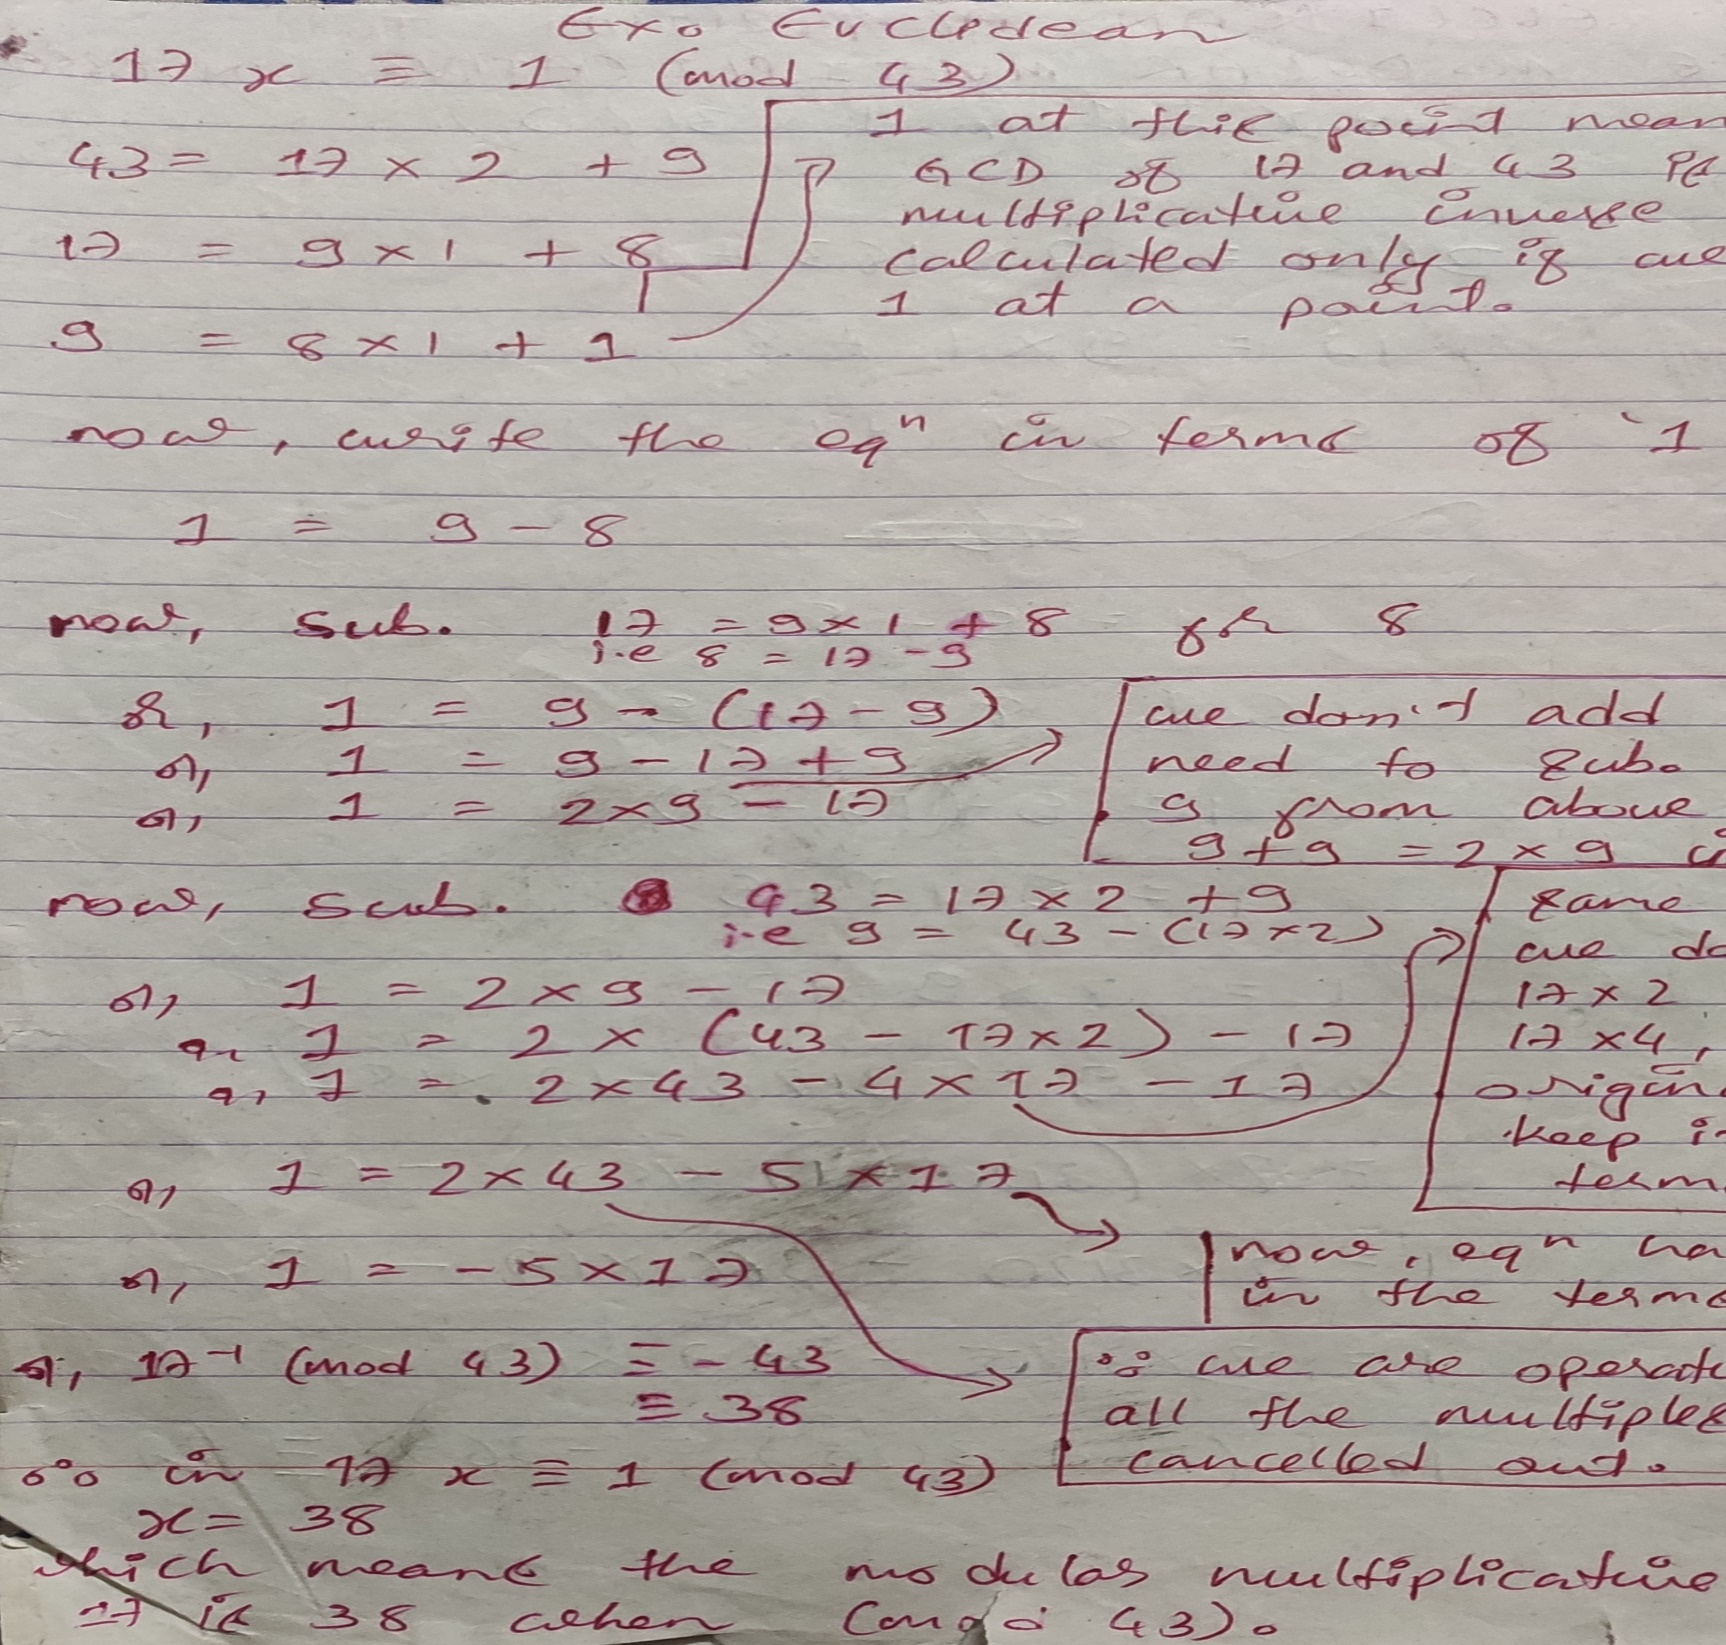 Ex. Euclidean
17 x ≡ 1 (mod 43)
43 = 17 × 2 + 9
17 = 9 × 1 + 8
9 = 8 × 1 + 1
1 at this point mean
GCD of 17 and 43 is
multiplicative inverse
calculated only if we
1 at a point.
now, write the eqⁿ in terms of '1
1 = 9 - 8
now, sub. 17 = 9 × 1 + 8 for 8
i.e 8 = 17 - 9
or, 1 = 9 - (17 - 9)
or, 1 = 9 - 17 + 9
or, 1 = 2 × 9 - 17
we don't add
need to sub.
9 from above
9 + 9 = 2 × 9
now, sub. 43 = 17 × 2 + 9
i.e 9 = 43 - (17 × 2)
or, 1 = 2 × 9 - 17
or, 1 = 2 × (43 - 17 × 2) - 17
or, 1 = 2 × 43 - 4 × 17 - 17
same
we do
17 × 2
17 × 4,
origin
keep i
term
or, 1 = 2 × 43 - 5 × 17
or, 1 = -5 × 17
now, eqⁿ ha
in the terms
or, 17⁻¹ (mod 43) ≡ - 43
≡ 38
∵ we are operat
all the multiples
cancelled out.
∴ in 17 x ≡ 1 (mod 43)
x = 38
which means the modular multiplicative
17 is 38 when (mod 43).